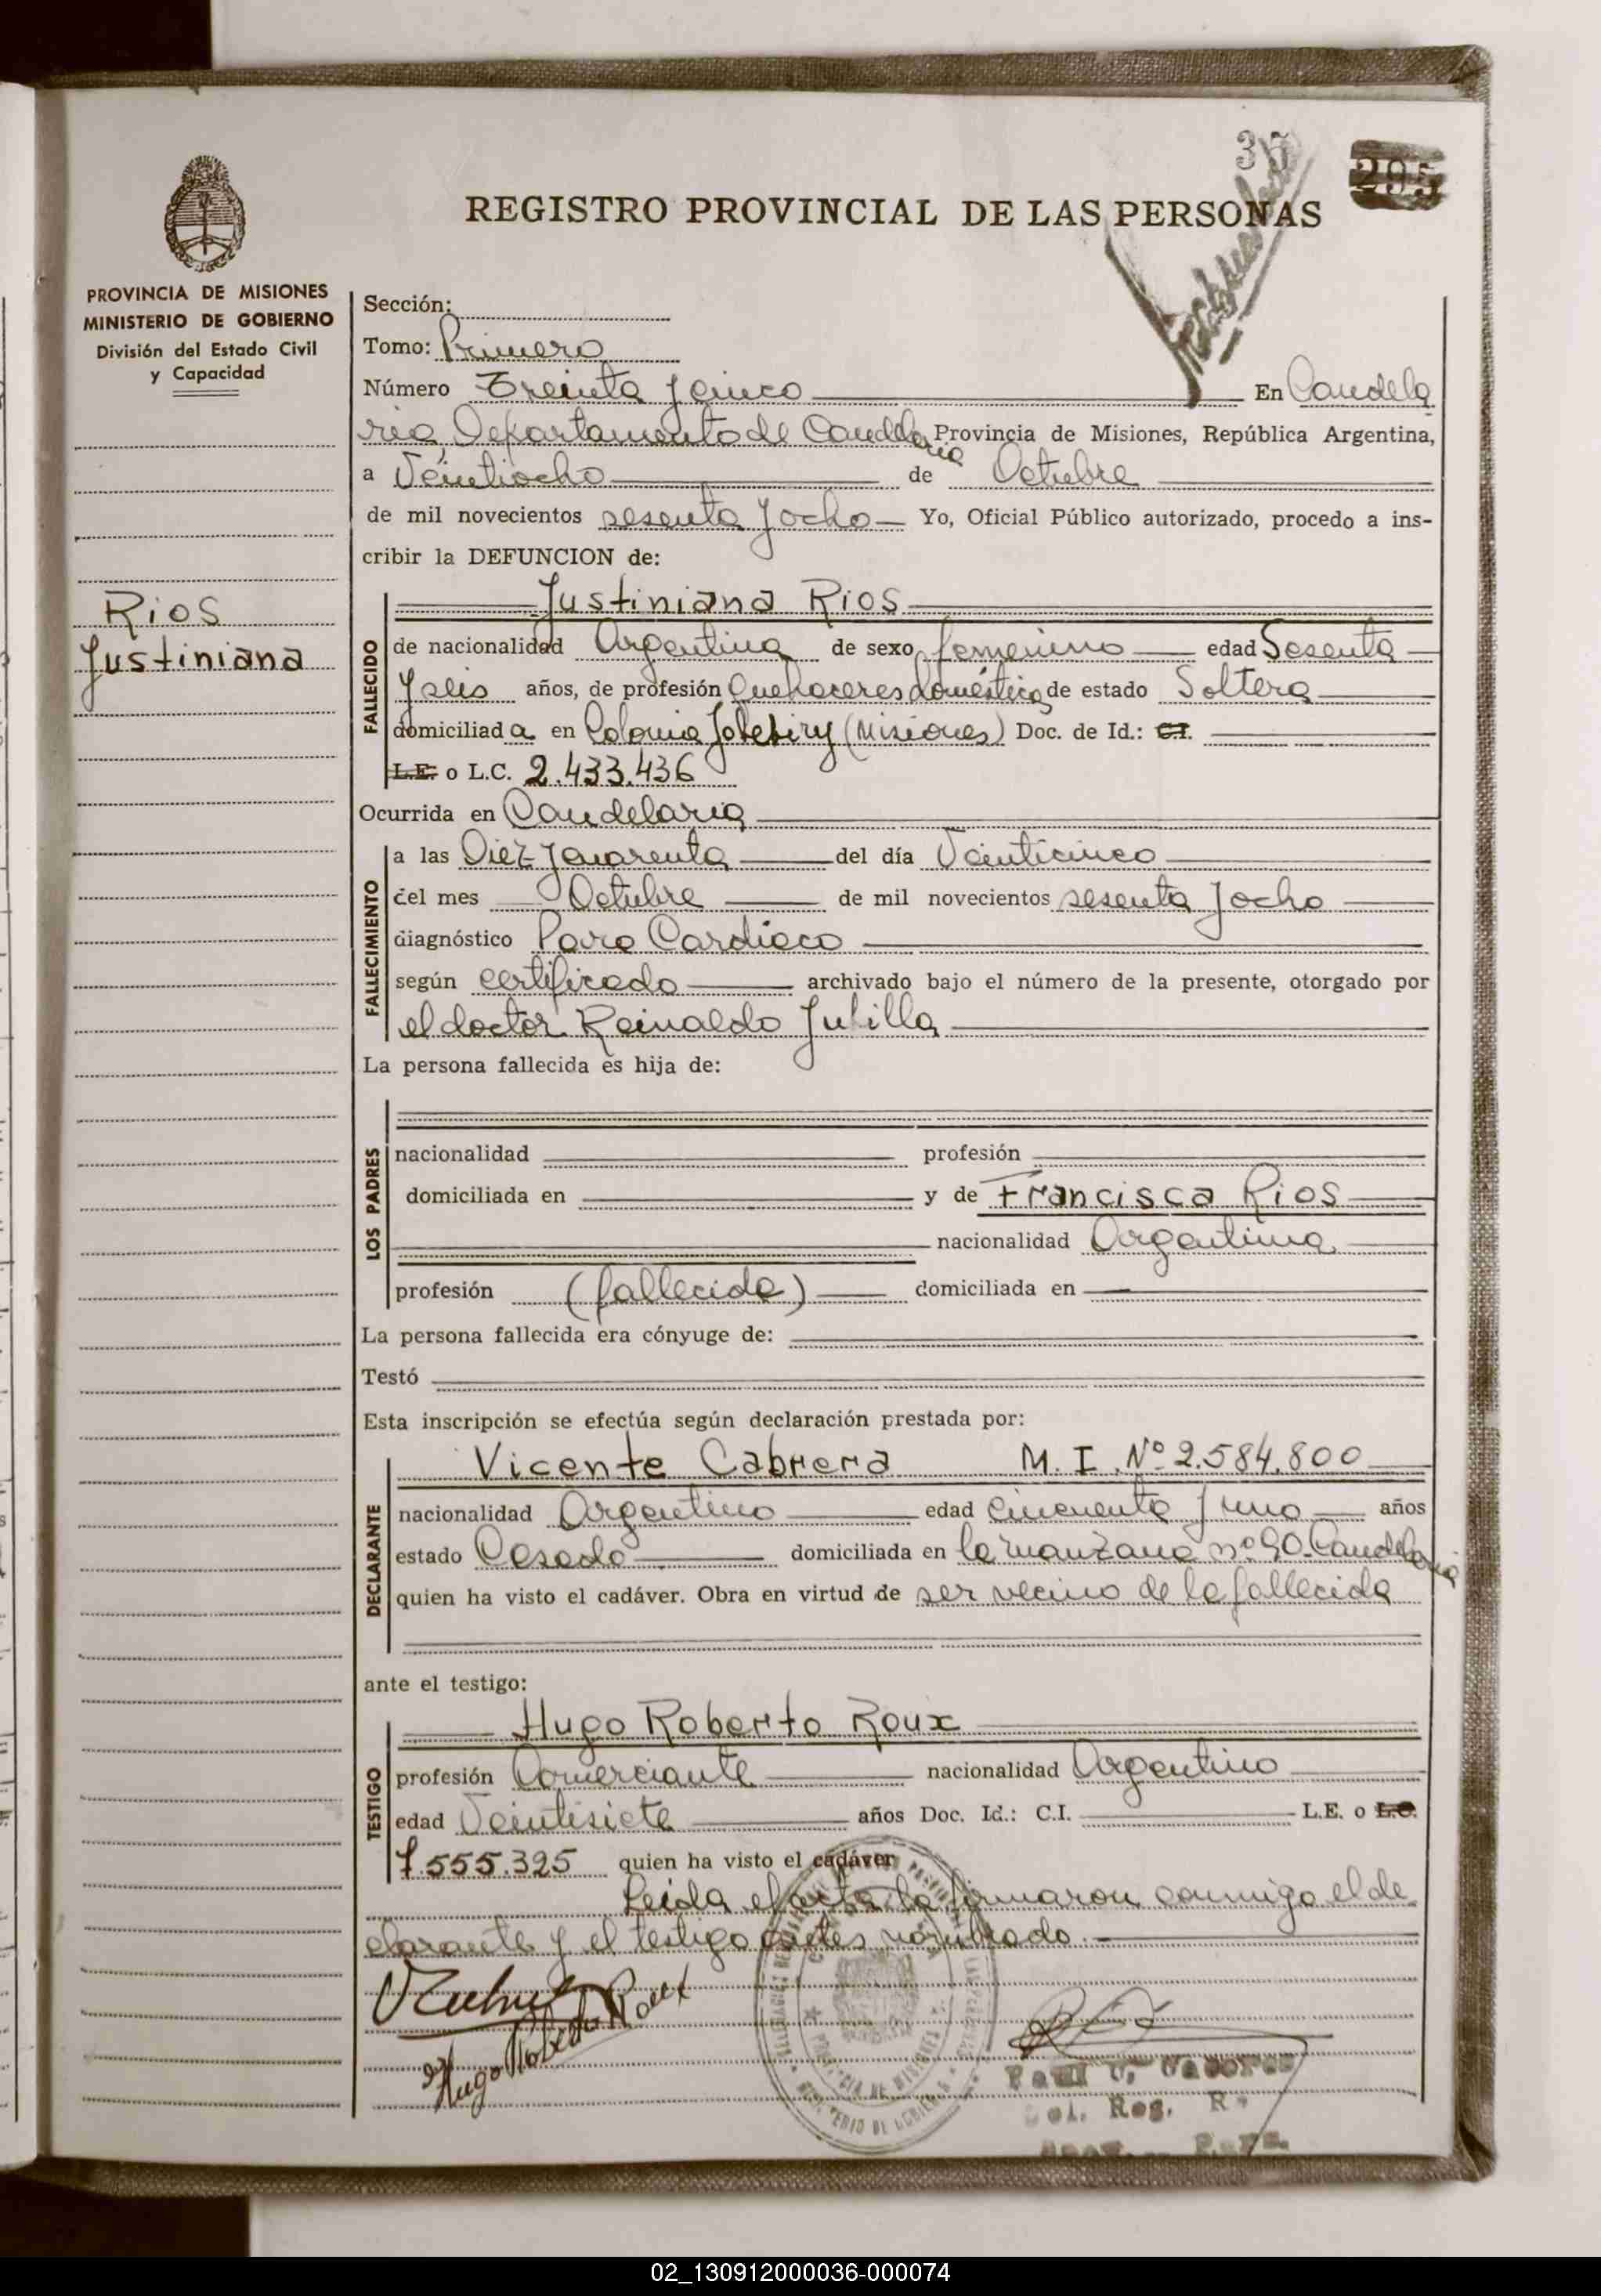 35
295
REGISTRO PROVINCIAL DE LAS PERSONAS
PROVINCIA DE MISIONES
MINISTERIO DE GOBIERNO
División del Estado Civil
y Capacidad
Rios
Justiniana
Sección:
Tomo: Primero
Número Treinta y cinco En Candela
ria, Departamento de Candelaria Provincia de Misiones, República Argentina,
a Veintiocho de Octubre
de mil novecientos sesenta y ocho Yo, Oficial Público autorizado, procedo a ins-
cribir la DEFUNCION de:
FALLECIDO
Justiniana Rios
de nacionalidad Argentina de sexo femenino edad Sesenta
y seis años, de profesión Quehaceres domésticos de estado Soltera
domiciliada en Colonia (Misiones) Doc. de Id.: C.I.
L.E. o L.C. 2.433.436
Ocurrida en Candelaria
FALLECIMIENTO
a las Diez y cuarenta del día Veinticinco
del mes Octubre de mil novecientos sesenta y ocho
diagnóstico Paro Cardiaco
según certificado archivado bajo el número de la presente, otorgado por
el doctor Reinaldo Jubilla
La persona fallecida es hija de:
LOS PADRES
nacionalidad profesión
domiciliada en y de Francisca Rios
nacionalidad Argentina
profesión (fallecida) domiciliada en
La persona fallecida era cónyuge de:
Testó
Esta inscripción se efectúa según declaración prestada por:
DECLARANTE
Vicente Cabrera M. I. Nº 2.584.800
nacionalidad Argentino edad cincuenta y uno años
estado Casado domiciliada en la manzana nº 90. Candelaria
quien ha visto el cadáver. Obra en virtud de ser vecino de la fallecida
ante el testigo:
TESTIGO
Hugo Roberto Roux
profesión Comerciante nacionalidad Argentino
edad Veintisiete años Doc. Id.: C.I. L.E. o L.C.
7.555.325 quien ha visto el cadáver
Leida el acta la firmaron conmigo el de
clarante y el testigo antes nombrado.
Hugo Roberto Roux
PROVINCIA DE MISIONES
02_130912000036-000074